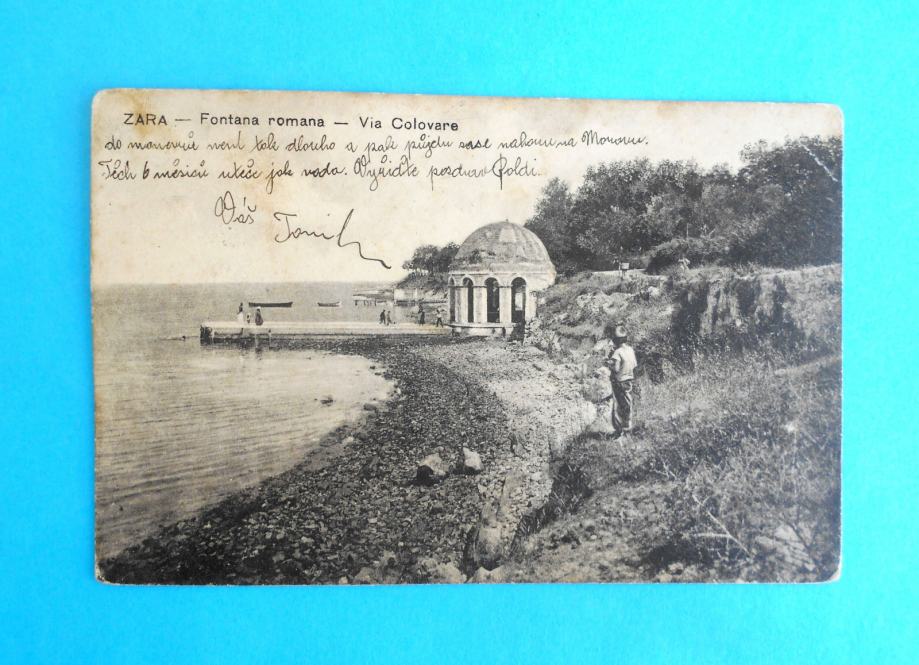 ZARA — Fontana romana — Via Colovare
do manevrů není tak dlouho a pak půjdu zase nahoru na Moravu.
Těch 6 měsíců uteče jak voda. Vyřiďte pozdrav Poldi.
Váš Toník